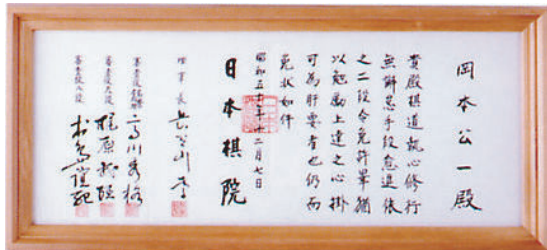 岡本公一殿
貴殿棋道執心修行
無懈怠手段愈進依
之二段令免許畢猶
以勉勵上達之心掛
可為肝要者也仍而
免状如件
昭和五十年十二月七日
日本棋院
理事長 長谷川
審査役 高川秀格
審査役 梶原武雄
審査役